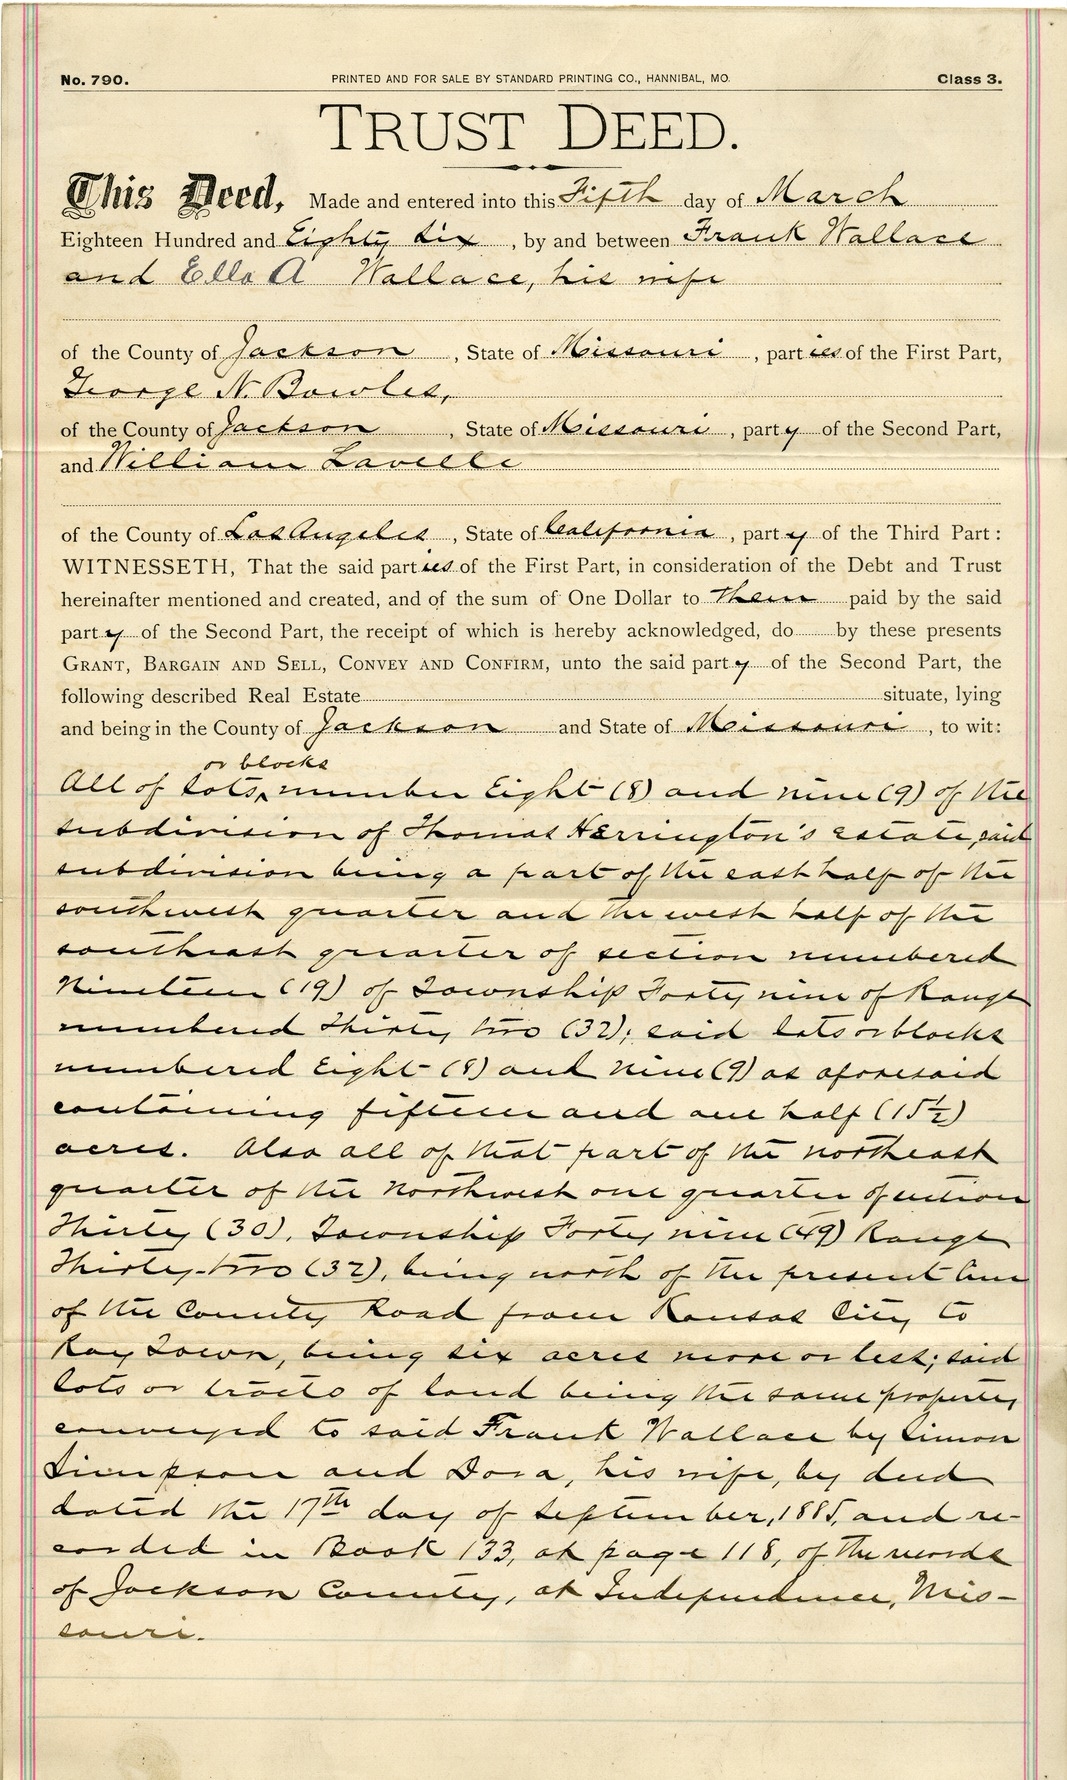 No. 790. PRINTED AND FOR SALE BY STANDARD PRINTING CO., HANNIBAL, MO. Class 3.
TRUST DEED.
This Deed, Made and entered into this Fifth day of March
Eighteen Hundred and Eighty six, by and between Frank Wallace
and Ella A Wallace, his wife
of the County of Jackson, State of Missouri, parties of the First Part,
George N. Bowles,
of the County of Jackson, State of Missouri, party of the Second Part,
and William Lavelle
of the County of Los Angeles, State of California, party of the Third Part:
WITNESSETH, That the said parties of the First Part, in consideration of the Debt and Trust
hereinafter mentioned and created, and of the sum of One Dollar to them paid by the said
party of the Second Part, the receipt of which is hereby acknowledged, do by these presents
GRANT, BARGAIN AND SELL, CONVEY AND CONFIRM, unto the said party of the Second Part, the
following described Real Estate situate, lying
and being in the County of Jackson and State of Missouri, to wit:
or blocks
All of lots, number Eight (8) and nine (9) of the
subdivision of Thomas Herrington's estate, said
subdivision being a part of the east half of the
southwest quarter and the west half of the
southeast quarter of section numbered
Nineteen (19) of Township Forty nine of Range
numbered Thirty two (32); said lots or blocks
numbered Eight (8) and nine (9) as aforesaid
containing fifteen and one half (15½)
acres. Also all of that part of the northeast
quarter of the Northwest one quarter of section
Thirty (30), Township Forty nine (49) Range
Thirty-two (32), being north of the present line
of the County Road from Kansas City to
Ray Town, being six acres more or less; said
lots or tracts of land being the same property
conveyed to said Frank Wallace by Simon
Simpson and Dora, his wife, by deed
dated the 17th day of September, 1885, and re-
corded in Book 133, at page 118, of the records
of Jackson County, at Independence, Mis-
souri.